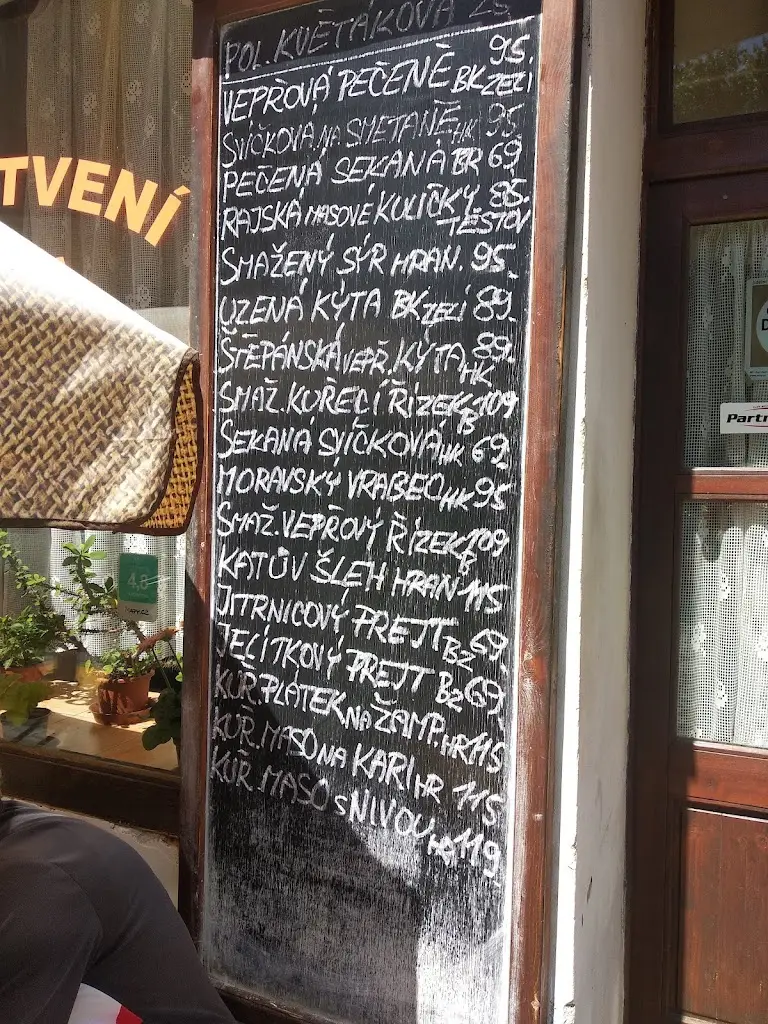 POL. KVĚTÁKOVÁ 25
VEPŘOVÁ PEČENĚ BK ZELÍ 95.
SVÍČKOVÁ NA SMETANĚ HK 95.
PEČENÁ SEKANÁ BR 69.
RAJSKÁ MASOVÉ KULIČKY 85.
TĚSTOV
SMAŽENÝ SÝR HRAN. 95.-
UZENÁ KÝTA BK ZELÍ 89.-
ŠTĚPÁNSKÁ VEPŘ. KÝTA HK 89.-
SMAŽ. KUŘECÍ ŘÍZEK B 109
SEKANÁ SVÍČKOVÁ HK 69.-
MORAVSKÝ VRABEC HK 95
SMAŽ. VEPŘOVÝ ŘÍZEK B 109
KATŮV ŠLEH HRAN 115
JITRNICOVÝ PREJT BZ 69.
JELÍTKOVÝ PREJT BZ 69.
KUŘ. PLÁTEK NA ŽAMP. HR 115
KUŘ. MASO NA KARI HR 115
KUŘ. MASO S NIVOU HR 119.
TVENÍ
4,8
Partn